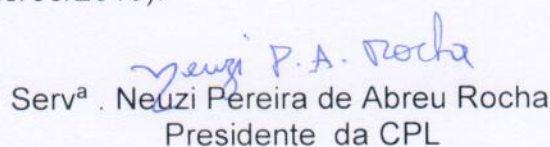 Neuzi P. A. Rocha
Servª . Neuzi Pereira de Abreu Rocha
Presidente da CPL